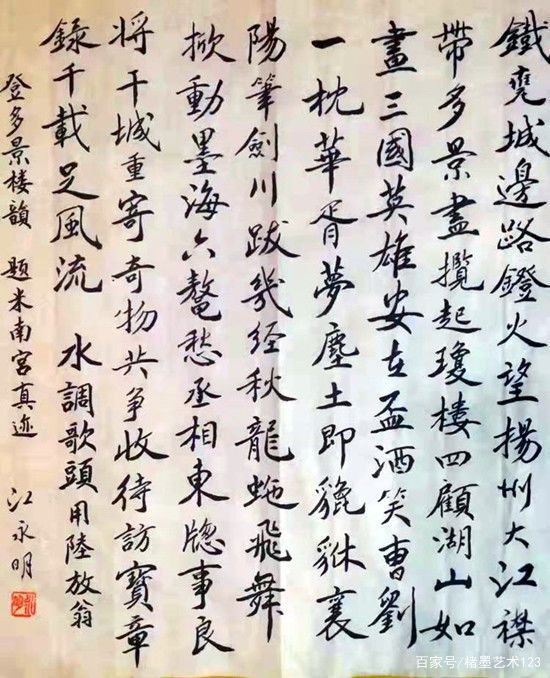 鐵甕城邊路鐙火望揚州大江襟
帶多景盡攬起瓊樓四顧湖山如
畫三國英雄安在盃酒笑曹劉
一枕華胥夢塵土即貔貅襄
陽筆劍川跋幾經秋龍虵飛舞
掀動墨海六鼇愁丞相東牕事良
将干城重寄奇物共争收待訪寶章
錄千載足風流 水調歌頭用陸放翁
登多景楼韻 題米南宮真迹 江永明
百家号/楮墨艺术123